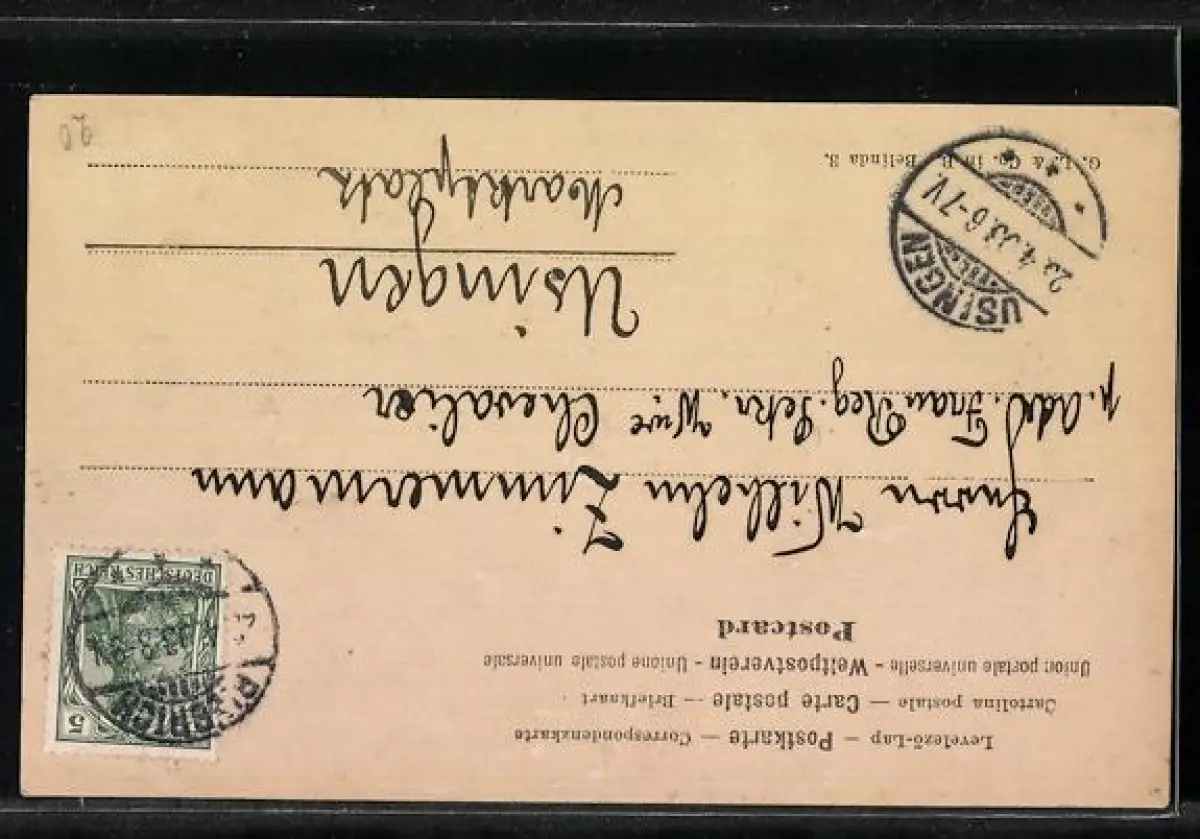 Levelező-Lap — Postkarte — Correspondenzkarte
Cartolina postale — Carte postale — Briefkaart
Union postale universelle - Weltpostverein - Unione postale universale
Postcard
5
DEUTSCHES REICH
Herrn Wilhelm Zimmermann
p. Adr. Frau Reg. Sekr. Wwe Chevalier
Usingen
Marktplatz
USINGEN
6-7V.
Belinda 3.
20